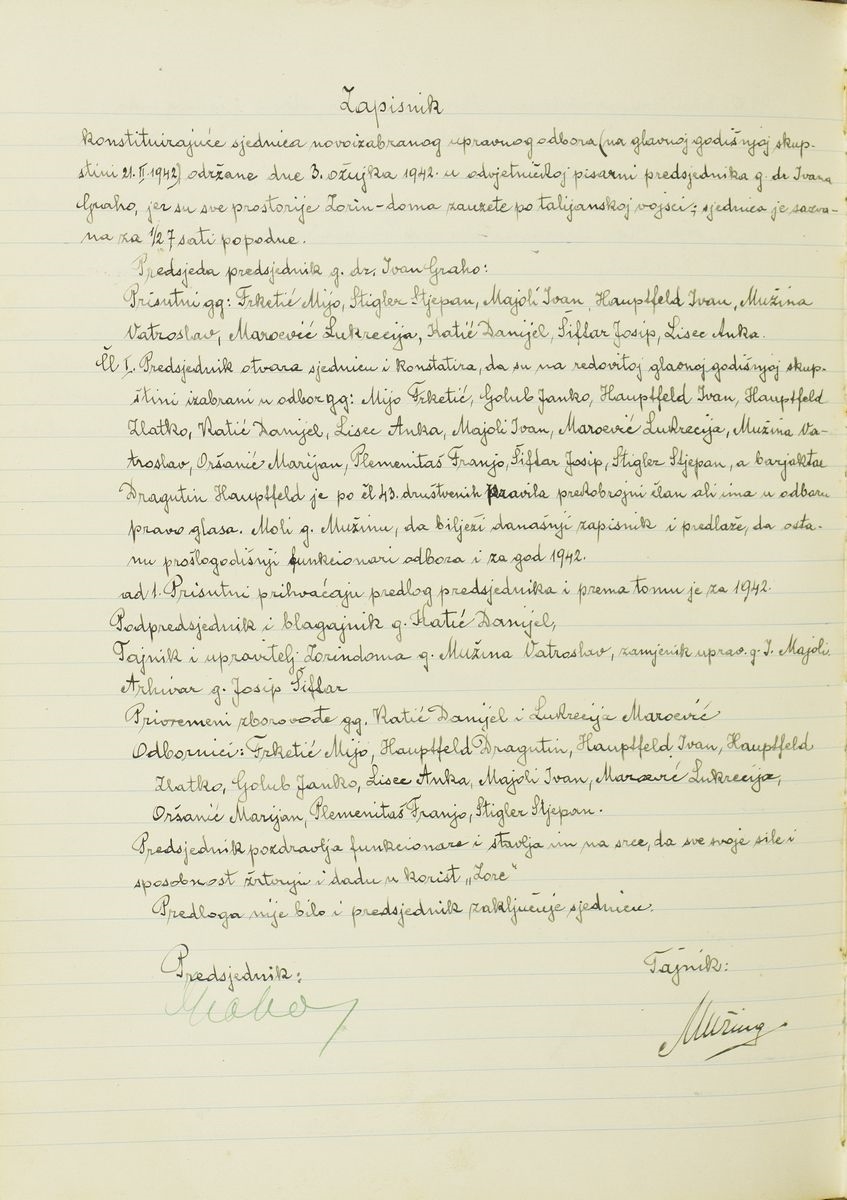 Zapisnik
konstituirajuće sjednica novoizabranog upravnog odbora (na glavnoj godišnjoj skup-
štini 21. II 1942) održane dne 3. ožujka 1942. u odvjetničkoj pisarni predsjednika g. dr Ivana
Graho, jer su sve prostorije Zorin-doma zauzete po talijanskoj vojsci; sjednica je sazva-
na za 1/2 7 sati popodne.
Predsjeda predsjednik g. dr. Ivan Graho:
Prisutni gg: Frketić Mijo, Stigler Stjepan, Majoli Ivan, Hauptfeld Ivan, Mužina
Vatroslav, Maroević Lukrecija, Katić Danijel, Šiftar Josip, Lisec Anka.
Čl I. Predsjednik otvara sjednicu i konstatira, da su na redovitoj glavnoj godišnjoj skup-
štini izabrani u odbor gg: Mijo Frketić, Golub Janko, Hauptfeld Ivan, Hauptfeld
Zlatko, Katić Danijel, Lisec Anka, Majoli Ivan, Maroević Lukrecija, Mužina Va-
troslav, Oršanić Marijan, Plemenitaš Franjo, Šiftar Josip, Stigler Stjepan, a barjaktar
Dragutin Hauptfeld je po čl 43. društvenih pravila prekobrojni član ali ima u odboru
pravo glasa. Moli g. Mužinu, da bilježi današnji zapisnik i predlaže, da osta-
nu prošlogodišnji funkcionari odbora i za god 1942.
ad 1. Prisutni prihvaćaju predlog predsjednika i prema tomu je za 1942.
Podpredsjednik i blagajnik g. Katić Danijel,
Tajnik i upravitelj Zorindoma g. Mužina Vatroslav, zamjenik uprav. g. I. Majoli.
Arhivar g. Josip Šiftar
Privremeni zborovođe gg. Katić Danijel i Lukrecija Maroević
Odbornici: Frketić Mijo, Hauptfeld Dragutin, Hauptfeld Ivan, Hauptfeld
Zlatko, Golub Janko, Lisec Anka, Majoli Ivan, Maroević Lukrecija,
Oršanić Marijan, Plemenitaš Franjo, Stigler Stjepan.
Predsjednik pozdravlja funkcionare i stavlja im na srce, da sve svoje sile i
sposobnost žrtvuju i dadu u korist „Zore“
Predloga nije bilo i predsjednik zaključuje sjednicu.
Predsjednik: Tajnik:
Graho Mužina